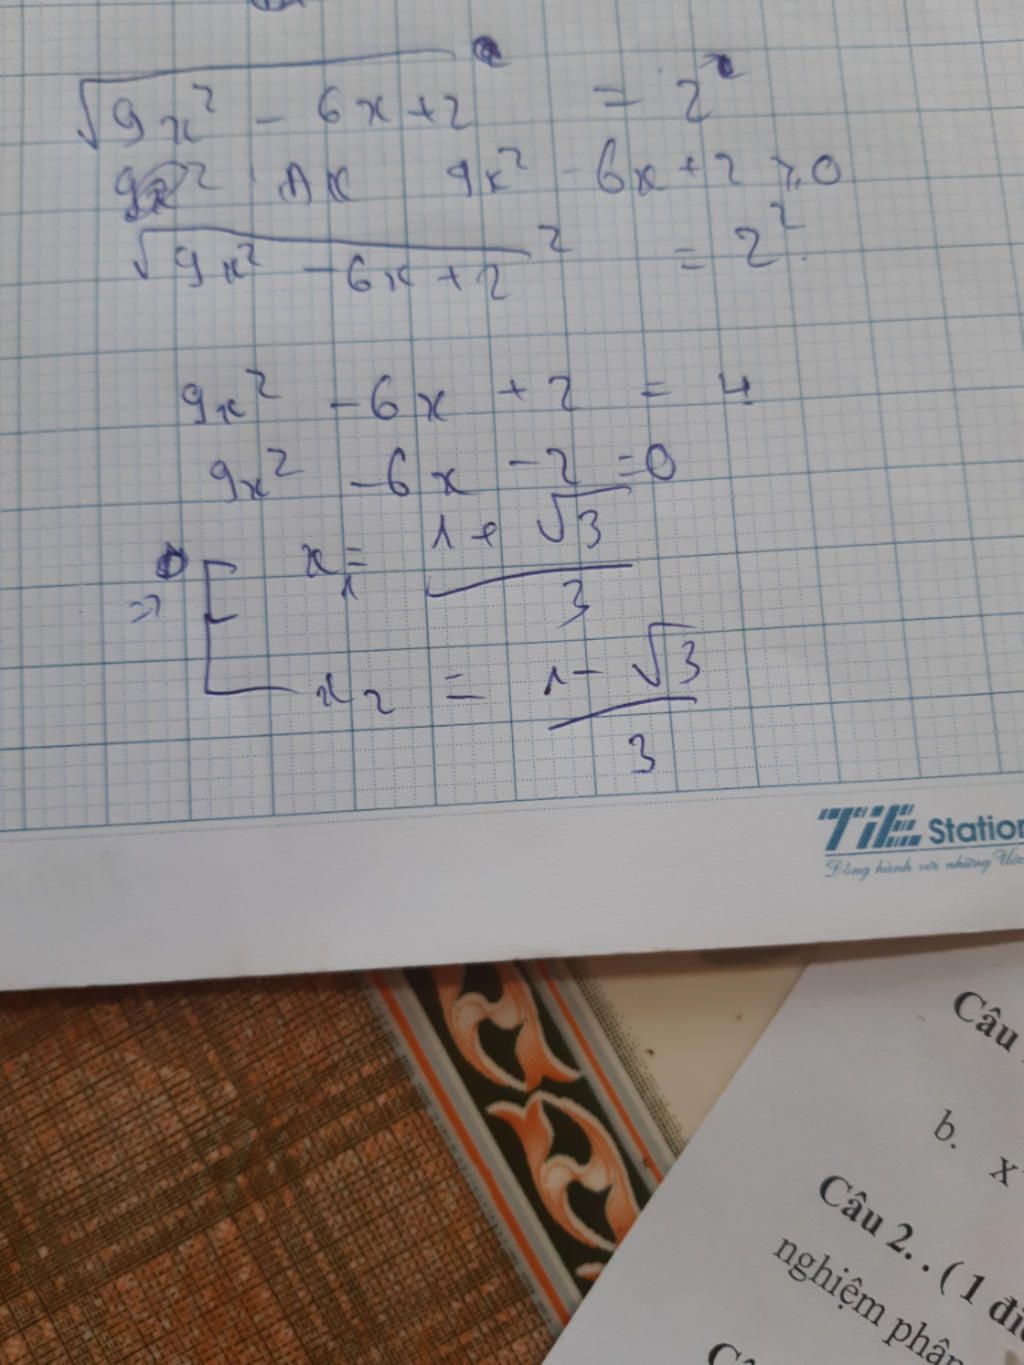 √(9x² - 6x + 2) = 2
9x² ĐK 9x² - 6x + 2 ≥ 0
√(9x² - 6x + 2)² = 2²
9x² - 6x + 2 = 4
9x² - 6x - 2 = 0
=> [ x₁ = (1 + √3)/3
x₂ = (1 - √3)/3
TiE Station
Đồng hành với những
Câu
b. x
Câu 2. . ( 1
nghiệm